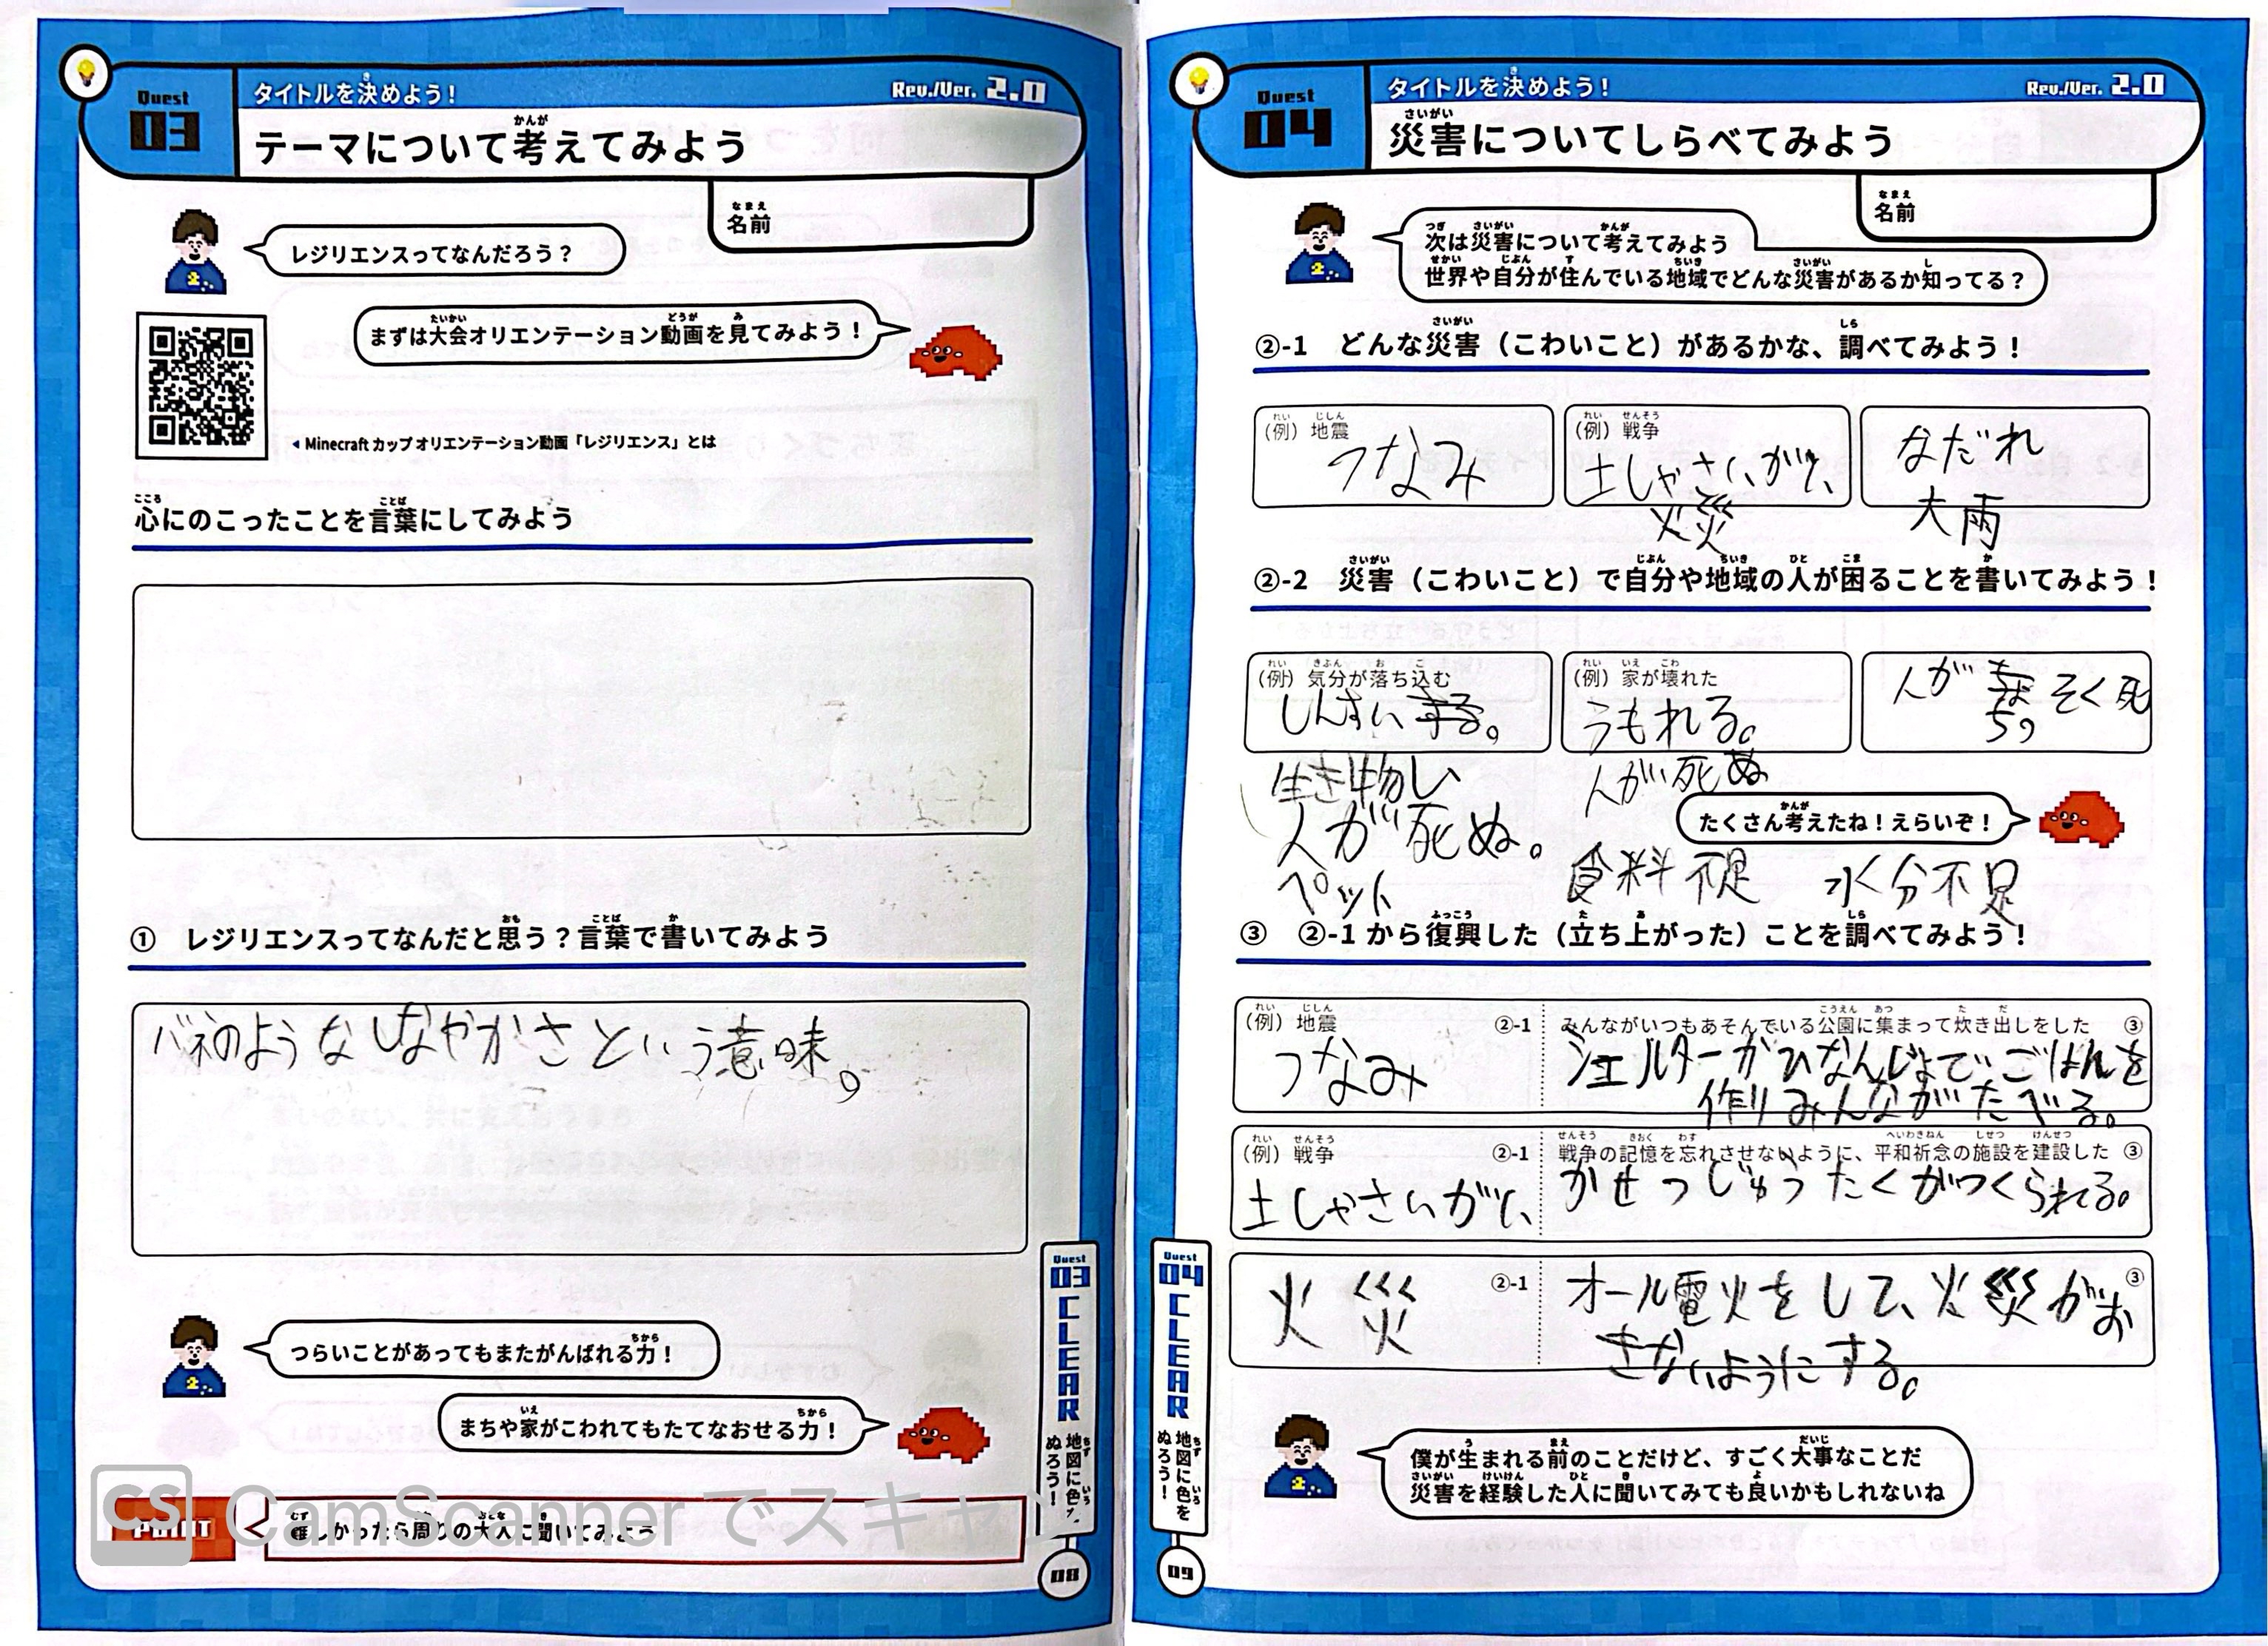 Quest 03
タイトルを決めよう！
Rev./Ver. 2.0
テーマについて考えてみよう
名前
レジリエンスってなんだろう？
まずは大会オリエンテーション動画を見てみよう！
Minecraft カップ オリエンテーション動画「レジリエンス」とは
心にのこったことを言葉にしてみよう
① レジリエンスってなんだと思う？言葉で書いてみよう
バネのようなしなやかさという意味。
つらいことがあってもまたがんばれる力！
まちや家がこわれてもたてなおせる力！
POINT
難しかったら周りの大人に聞いてみよう
Quest 03 CLEAR
地図に色を
ぬろう！
08
CS CamScannerでスキャン
Quest 04
タイトルを決めよう！
Rev./Ver. 2.0
災害についてしらべてみよう
名前
次は災害について考えてみよう
世界や自分が住んでいる地域でどんな災害があるか知ってる？
②-1 どんな災害（こわいこと）があるかな、調べてみよう！
（例）地震
つなみ
（例）戦争
土しゃさいがい
火災
なだれ
大雨
②-2 災害（こわいこと）で自分や地域の人が困ることを書いてみよう！
（例）気分が落ち込む
しんすい する。
生き物
人が死ぬ。
ペット
（例）家が壊れた
うもれる。
人が死ぬ
人が ちっそく死
たくさん考えたね！えらいぞ！
食料不足 水分不足
③ ②-1 から復興した（立ち上がった）ことを調べてみよう！
（例）地震 ②-1 みんながいつもあそんでいる公園に集まって炊き出しをした ③
つなみ
シェルターかひなんじょでごはんを
作りみんながたべる。
（例）戦争 ②-1 戦争の記憶を忘れさせないように、平和祈念の施設を建設した ③
土しゃさいがい
かせつじゅうたくがつくられる。
火災 ②-1 ③
オール電火をして、火災がお
きないようにする。
僕が生まれる前のことだけど、すごく大事なことだ
災害を経験した人に聞いてみても良いかもしれないね
Quest 04 CLEAR
地図に色を
ぬろう！
09